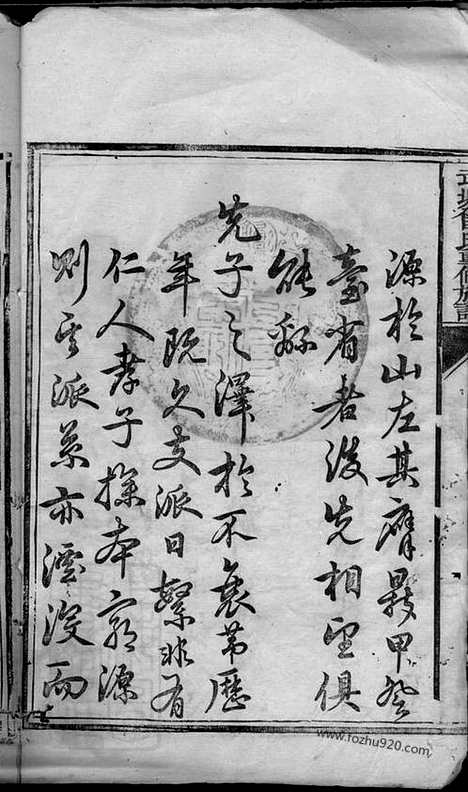 源於山左其膺顯甲登
臺省者後先相望俱
能繇
先子之澤於不衰第歷
年既久支派日繁非有
仁人孝子探本窮源
則其派系亦湮没而
www.fozhu920.com